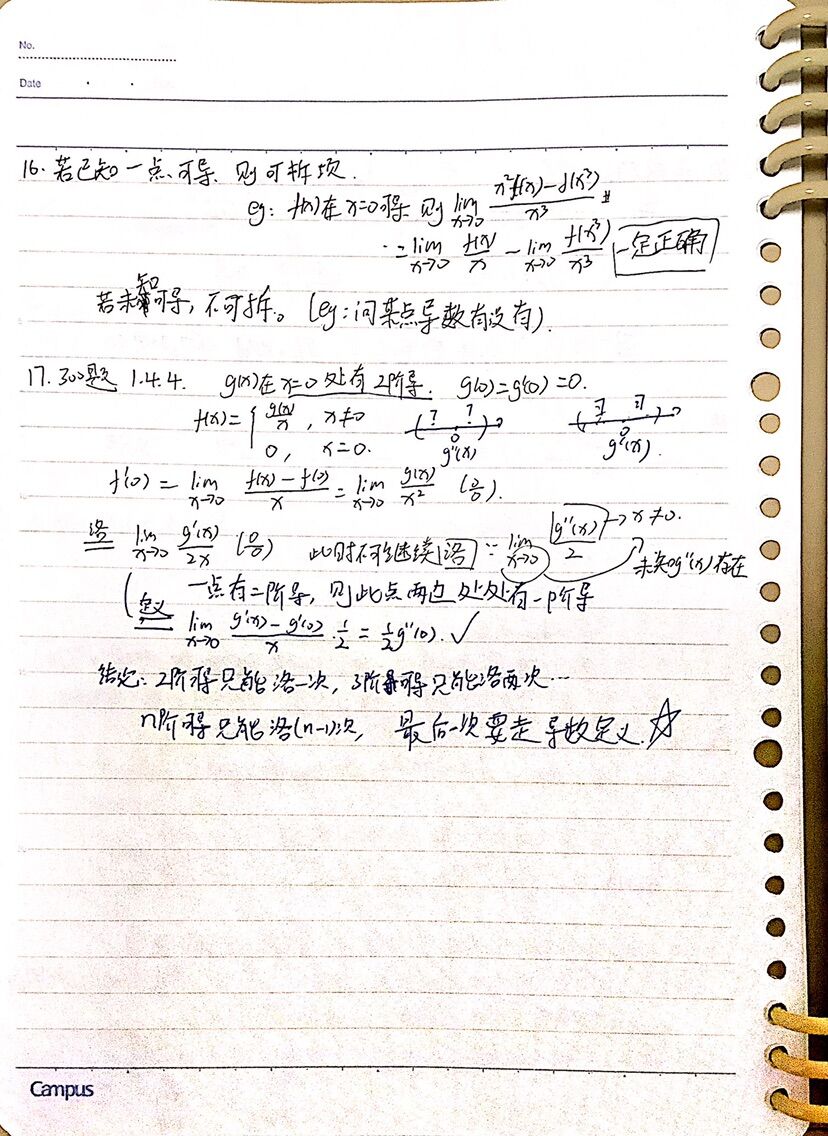 No.
Date
16. 若已知一点可导,则可拆项.
eg: f(x)在x=0可导 则 lim x→0 (x²f(x)-f(x³))/x³
= lim x→0 f(x)/x - lim x→0 f(x³)/x³ 一定正确
若未知可导,不可拆。(eg:问某点导数有没有).
17. 300题 1.4.4. g(x)在x=0处有2阶导. g(0)=g'(0)=0.
f(x)= { g(x)/x , x≠0 ( ? ? ) ( ∃ ∃ )
0 , x=0. 0 g''(x) 0 g'(x).
f'(0) = lim x→0 (f(x)-f(0))/x = lim x→0 g(x)/x² (0/0).
洛 lim x→0 g'(x)/2x (0/0) 此时不可继续洛 ∵ lim x→0 g''(x)/2 → x≠0.
未知g''(x)存在
一点有二阶导,则此点两边处处有一阶导
定义 lim x→0 (g'(x)-g'(0))/x · 1/2 = 1/2 g''(0). ✓
结论:2阶可导只能洛一次,3阶可导只能洛两次…
n阶可导只能洛(n-1)次, 最后一次要走导数定义.☆
Campus